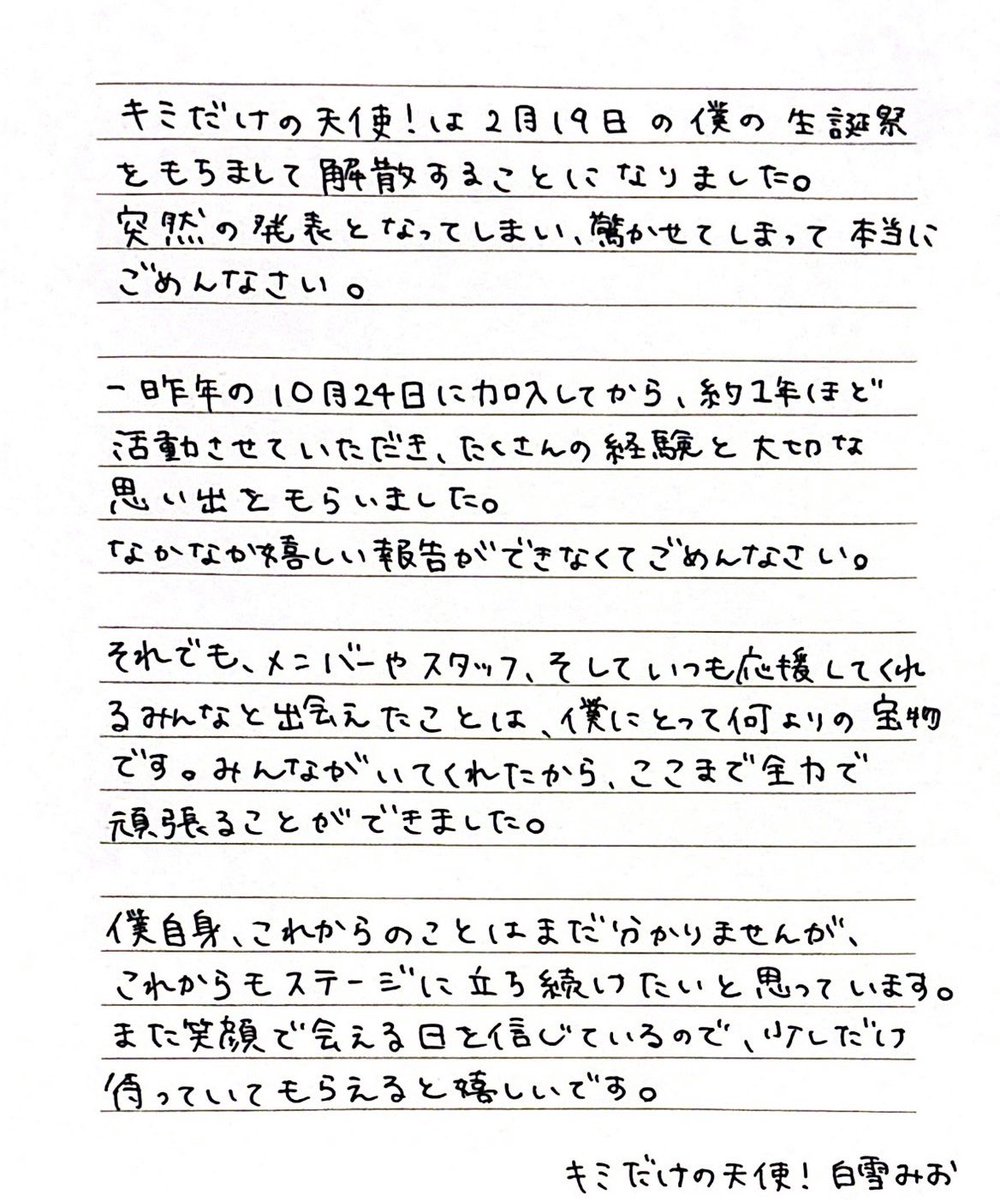 キミだけの天使！は2月19日の僕の生誕祭
をもちまして解散することになりました。
突然の発表となってしまい、驚かせてしまって本当に
ごめんなさい。
一昨年の10月24日に加入してから、約1年ほど
活動させていただき、たくさんの経験と大切な
思い出をもらいました。
なかなか嬉しい報告ができなくてごめんなさい。
それでも、メンバーやスタッフ、そしていつも応援してくれ
るみんなと出会えたことは、僕にとって何よりの宝物
です。みんながいてくれたから、ここまで全力で
頑張ることができました。
僕自身、これからのことはまだ分かりませんが、
これからもステージに立ち続けたいと思っています。
また笑顔で会える日を信じているので、少しだけ
待っていてもらえると嬉しいです。
キミだけの天使！白雪みお